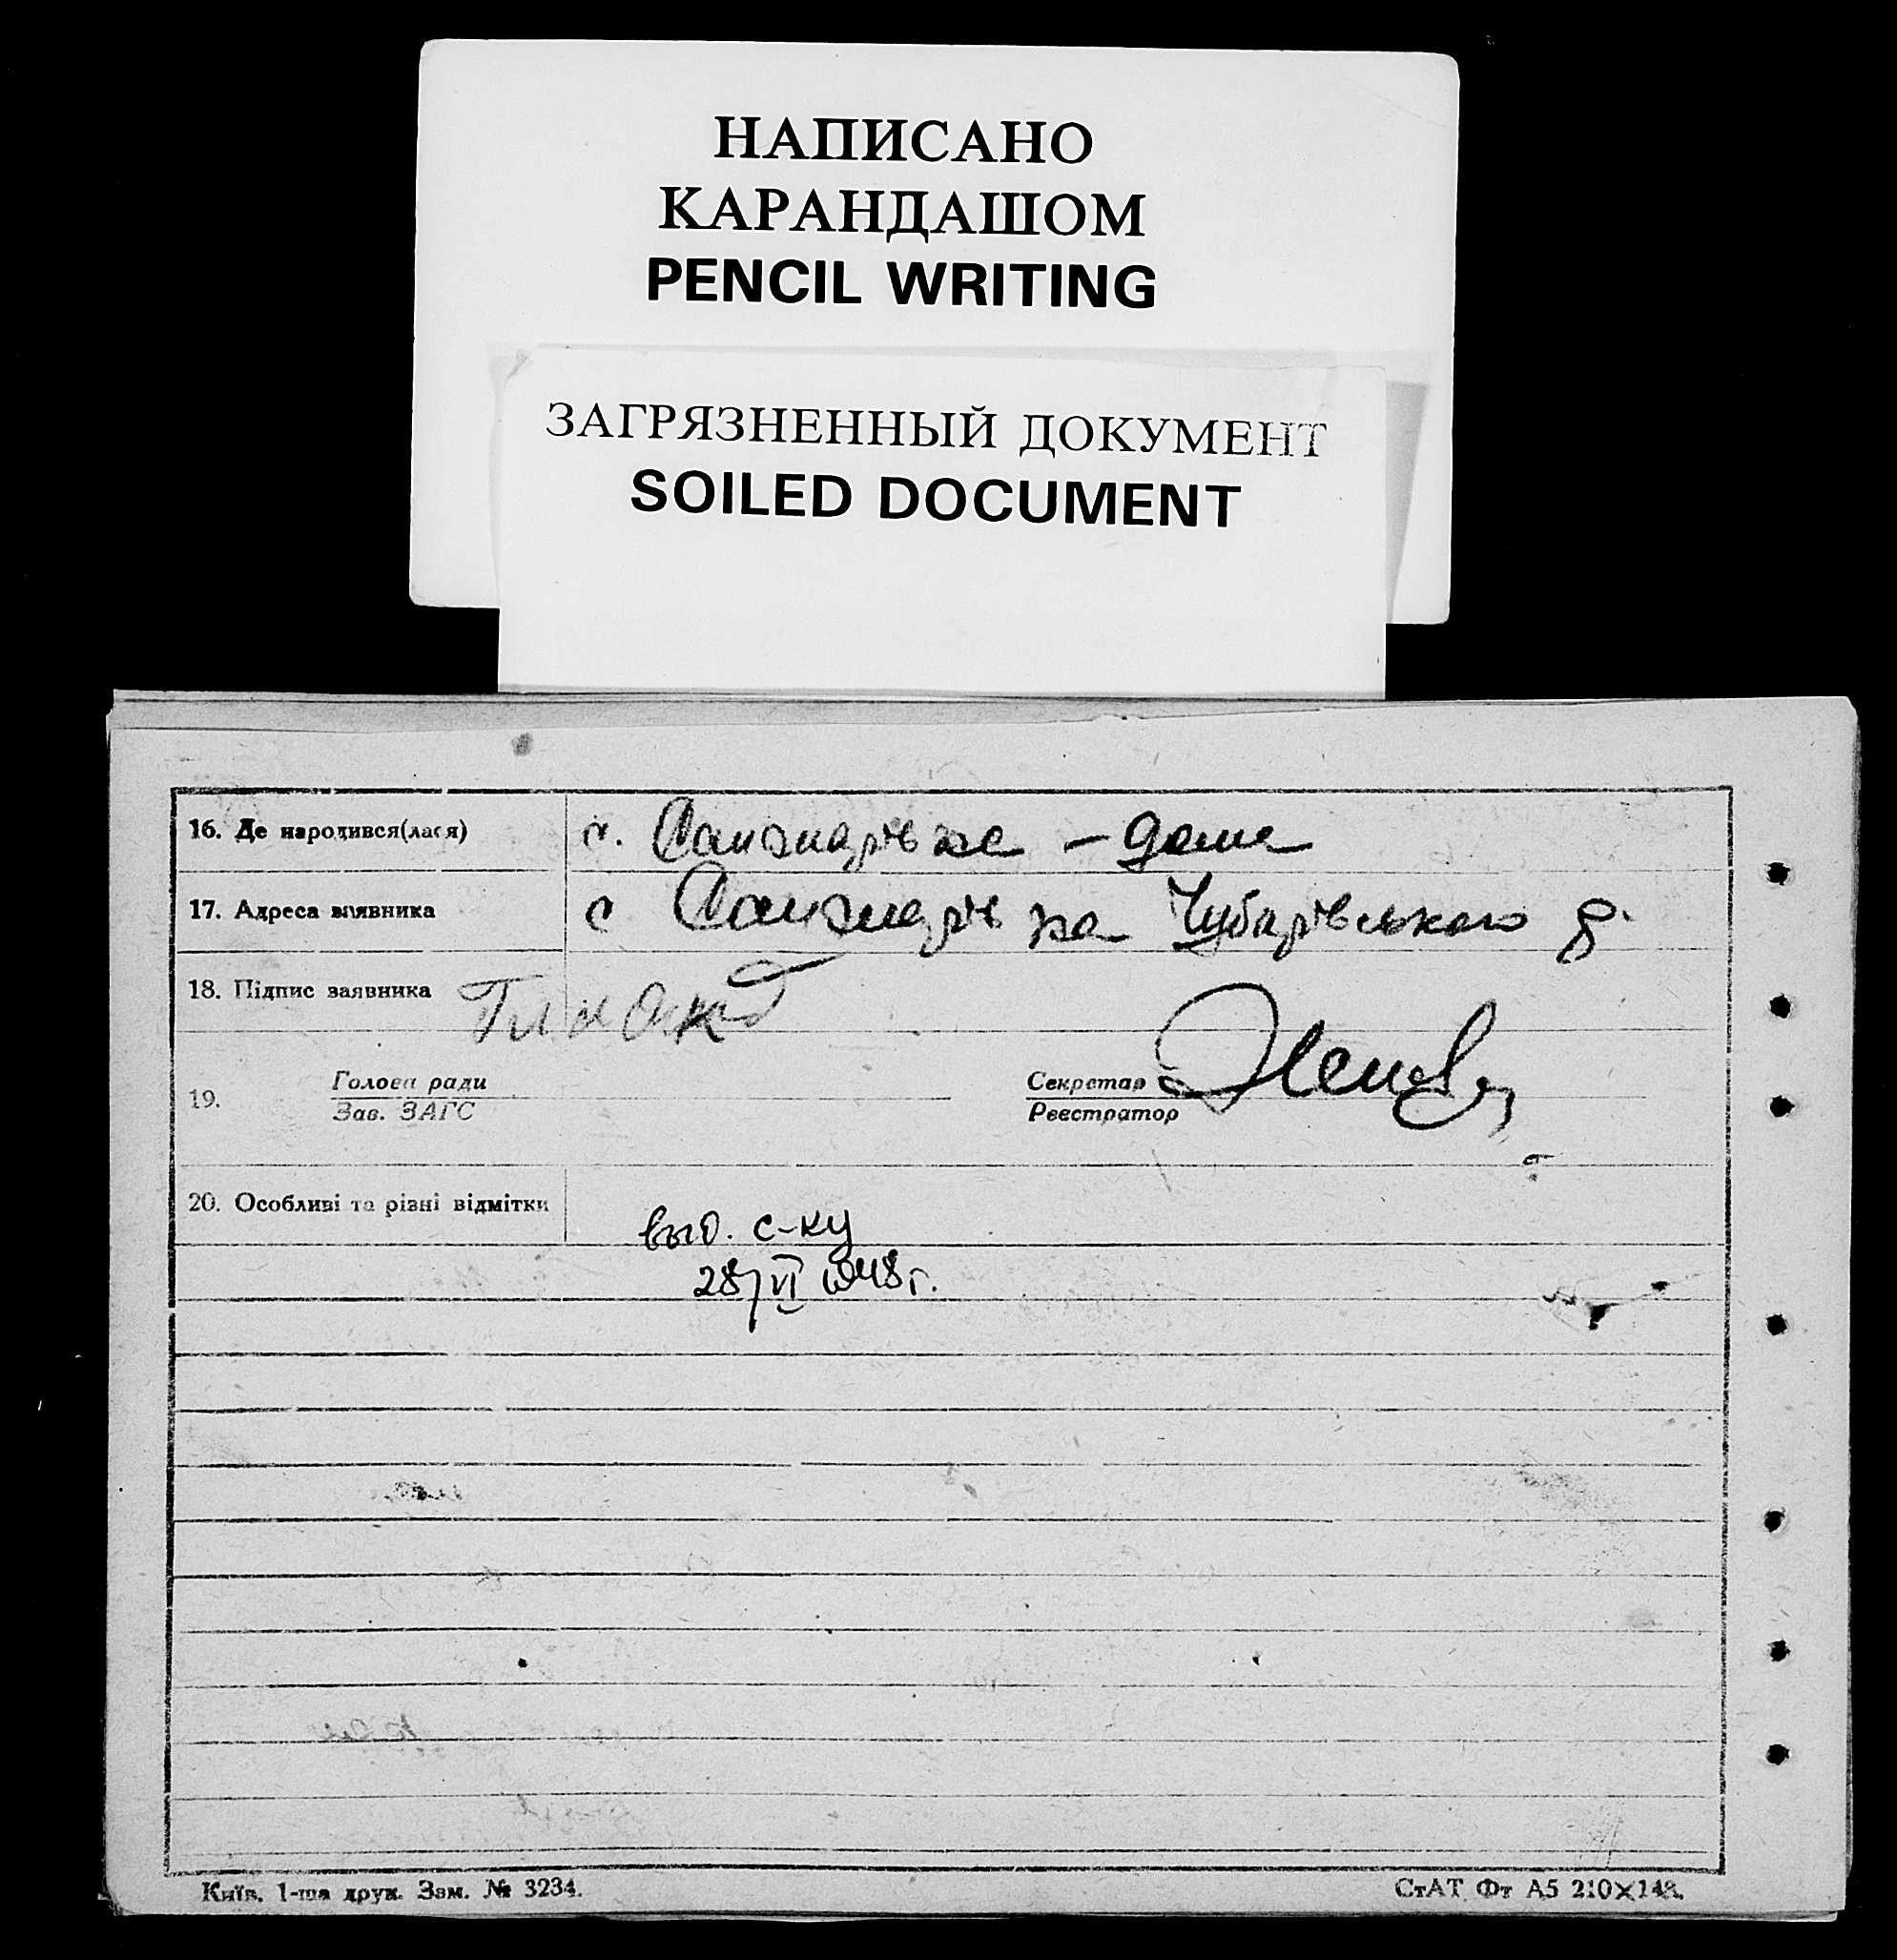 НАПИСАНО
КАРАНДАШОМ
PENCIL WRITING
ЗАГРЯЗНЕННЫЙ ДОКУМЕНТ
SOILED DOCUMENT
16. Де народився(лася) с. – дома
17. Адреса заявника с Чубарівського р.
18. Підпис заявника
19. Голова ради
Зав. ЗАГС
Секретар
Реєстратор
20. Особливі та різні відмітки
выд. с-ку
28/VI 1948 г.
Київ. 1-ша друк. Зам. № 3234.
СтАТ Фт А5 210×148.